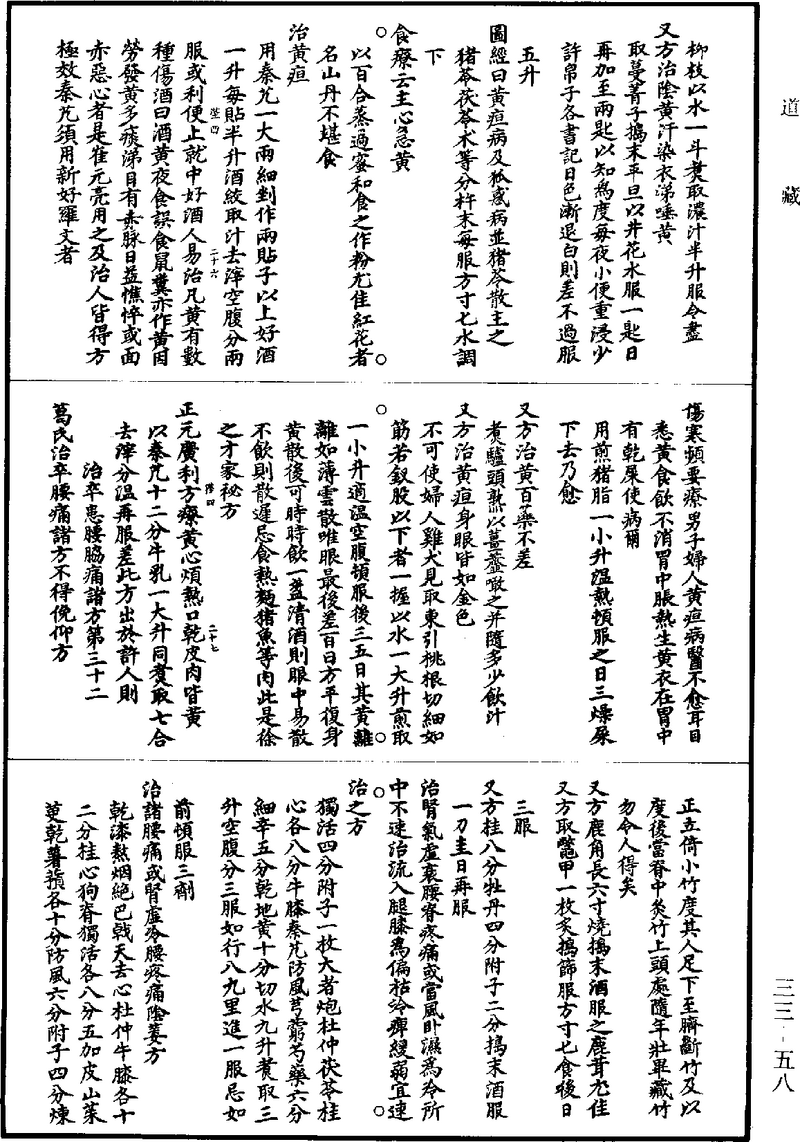 道藏
柳枝以水一斗煑取濃汁半升服令盡
又方治陰黃汗染衣涕唾黃
取蔓菁子搗末平旦以井花水服一匙日
再加至兩匙以知爲度每夜小便重浸少
許帛子各書記日色漸退白則差不過服
五升
圖經曰黃疸病及狐惑病並猪苓散主之
猪苓茯苓术等分杵末每服方寸匕水調
下
食療云主心急黃
以百合蒸過蜜和食之作粉尤佳紅花者
名山丹不堪食
治黃疸
用秦艽一大兩細剉作兩貼子以上好酒
一升每貼半升酒絞取汁去滓空腹分兩
服或利便上就中好酒人易治凡黃有數
種傷酒曰酒黃夜食誤食鼠糞亦作黃因
勞發黃多痰涕目有赤脉日益憔悴或面
赤惡心者是崔元亮用之及治人皆得方
極效秦艽須用新好羅文者
二十六
傷寒類要療男子婦人黃疸病醫不愈耳目
悉黃食飲不消胃中脹熱生黃衣在胃中
有乾屎使病爾
用煎猪脂一小升溫熱頓服之日三燥屎
下去乃愈
又方治黃百藥不差
煑驢頭熟以薑虀噉之并隨多少飲汁
又方治黃疸身眼皆如金色
不可使婦人雞犬見取東引桃根切細如
筯若釵股以下者一握以水一大升煎取
一小升適溫空腹頓服後三五日其黃離
離如薄雲散唯眼最後差百日方平復身
黃散後可時時飲一盞清酒則眼中易散
不飲則散遲忌食熱麵猪魚等肉此是徐
之才家秘方
正元廣利方療黃心煩熱口乾皮肉皆黃
以秦艽十二分牛乳一大升同煑取七合
去滓分溫再服差此方出於許人則
治卒患腰脇痛諸方第三十二
葛氏治卒腰痛諸方不得俛仰方
二十七
正立倚小竹度其人足下至臍斷竹及以
度後當脊中灸竹上頭處隨年壯畢藏竹
勿令人得矣
又方鹿角長六寸燒搗末酒服之鹿茸尤佳
又方取鼈甲一枚炙搗篩服方寸匕食後日
三服
又方桂八分牡丹四分附子二分搗末酒服
一刀圭日再服
治腎氣虛衰腰脊疼痛或當風卧濕爲冷所
中不速治流入腿膝爲偏枯冷痺緩弱宜速
治之方
獨活四分附子一枚大者炮杜仲茯苓桂
心各八分牛膝秦艽防風芎藭芍藥六分
細辛五分乾地黃十分切水九升煑取三
升空腹分三服如行八九里進一服忌如
前頓服三劑
治諸腰痛或腎虛冷腰疼痛陰萎方
乾漆熬烟絕巴戟天去心杜仲牛膝各十
二分桂心狗脊獨活各八分五加皮山茱
萸乾薯蕷各十分防風六分附子四分煉
三三-五八